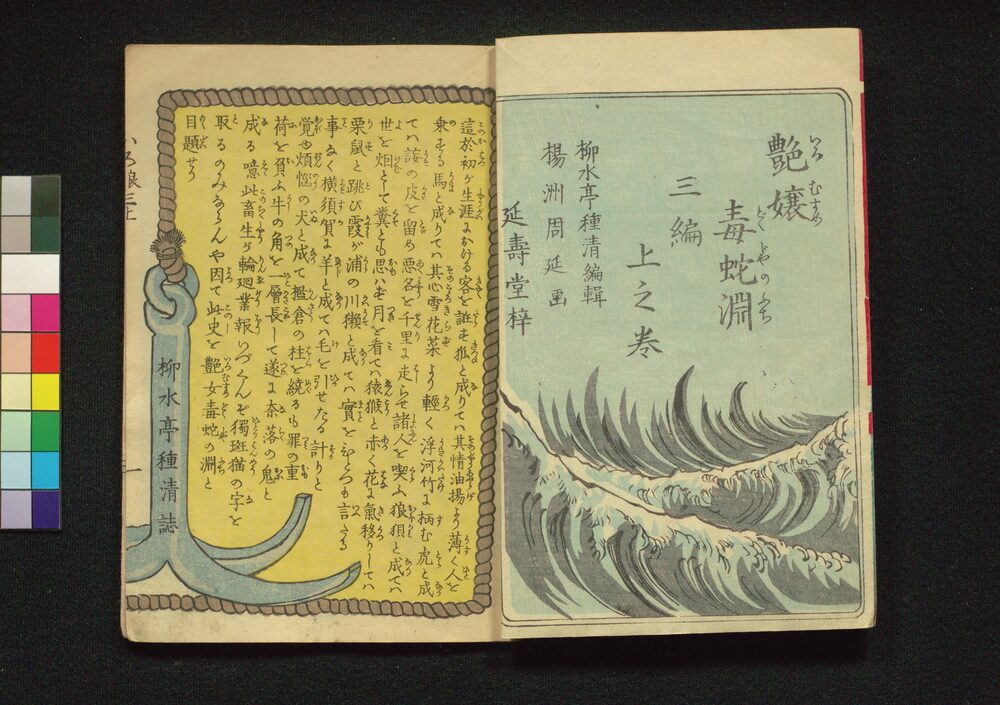 艶嬢
毒蛇淵
三編
上之巻
柳水亭種清編輯
楊洲周延画
延壽堂梓
這於初が生涯にかける客を誑す狐と成りては其情油揚より薄く人を
乗する馬と成りては其心雪花菜より輕く浮河竹に栖む虎と成
ては の皮を留め悪名を千里に走らせ諸人を喫ふ狼狽と成ては
世を畑として糞とも思はず月を看ては猿猴と赤く花に氣移りしては
栗鼠と跳び霞が浦の川獺と成ては實をひとつも言たる
事なく横須賀に羊と成ては毛を引せたる計りと
覚ゆ煩悩の犬と成て檻倉の柱を繞るも罪の重
荷を負ふ牛の角を一層長して遂に奈落の鬼と
成る噫此畜生が輪廻業報いづくんぞ獨斑猫の字を
取るのみならんや因て此史を艶女毒蛇の淵と
目題せり
柳水亭種清誌